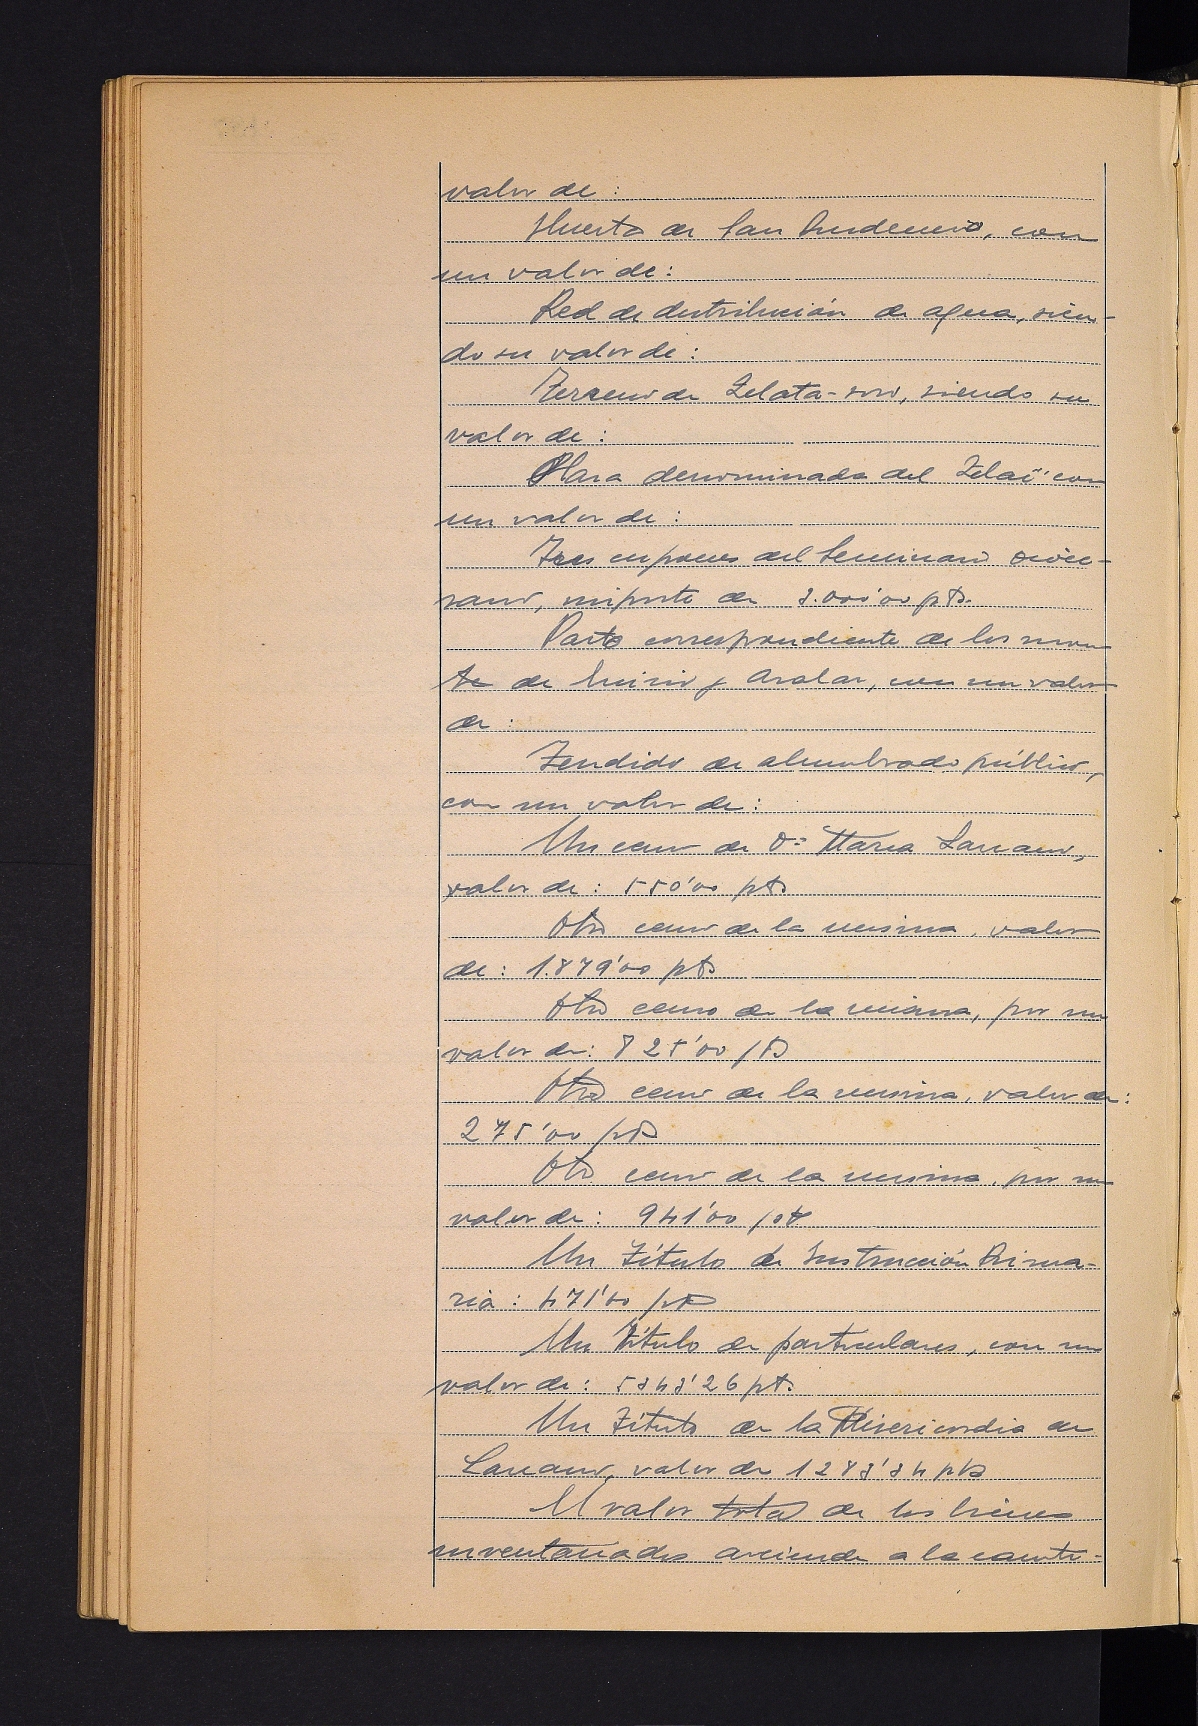 valor de:
Huerta de San Prudencio, con
un valor de:
Red de distribución de agua, sien-
do su valor de:
Terreno de Zelata-soro, siendo su
valor de:
Plaza denominada del Zelai con
un valor de:
Tres cupones del Seminario dioce-
sano, importe de 3.000'00 pts.
Parte correspondiente de los mon
te de Enirio y Aralar, con un valor
de:
Tendido de alumbrado público,
con un valor de:
Un censo de Dª María Lazcano,
valor de: 550'00 pts
Otro censo de la misma, valor
de: 1.879'00 pts
Otro censo de la misma, por un
valor de: 825'00 pts
Otro censo de la misma, valor de:
275'00 pts
Otro censo de la misma, por un
valor de: 941'00 pts
Un Título de Instrucción Prima-
ria: 471'00 pts
Un Título de particulares, con un
valor de: 5343'26 pts.
Un Título de la Misericordia de
Lazcano, valor de 1283'34 pts
El valor total de los bienes
inventariados asciende a la canti-